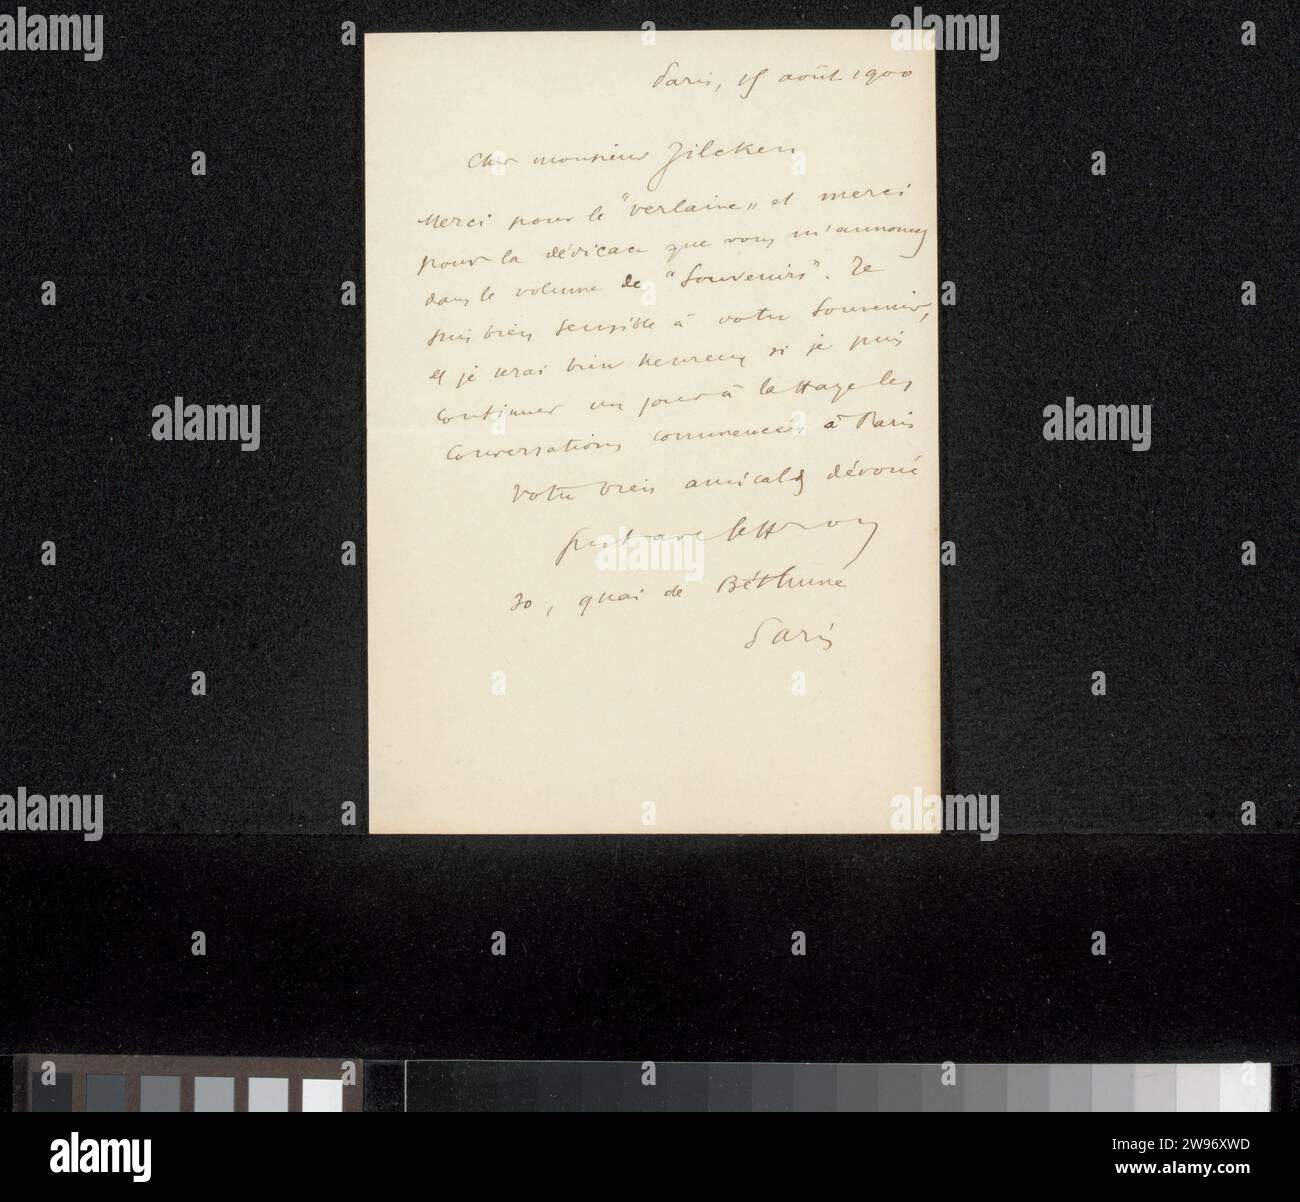 Paris, 15 août 1900
Cher monsieur Zilcken
Merci pour le "Verlaine" et merci
pour la dédicace que vous m'annoncez
dans le volume de "Souvenirs". Je
suis bien sensible à votre souvenir,
et je serai bien heureux si je puis
continuer un jour à la Haye les
conversations commencées à Paris
Votre bien amical dévoué
Gustave Geffroy
30, quai de Béthune
Paris
alamy
Image ID: 2W96XWD
www.alamy.com